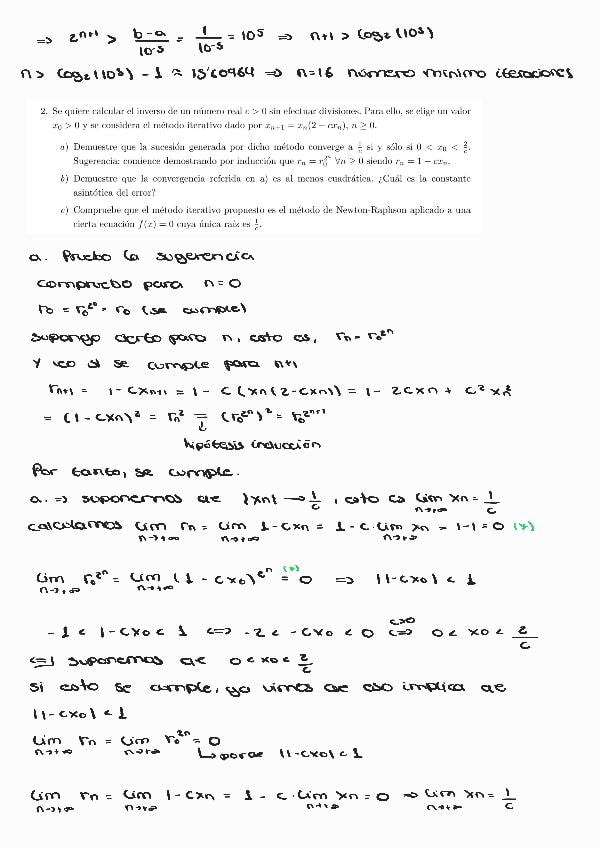 => 2^{n+1} > \frac{b-a}{10^{-5}} = \frac{1}{10^{-5}} = 10^5 => n+1 > log_2(10^5)
n > log_2(10^5) - 1 ≈ 15'60964 => n=16 número mínimo iteraciones
2. Se quiere calcular el inverso de un número real c > 0 sin efectuar divisiones. Para ello, se elige un valor
x_0 > 0 y se considera el método iterativo dado por x_{n+1} = x_n(2 − cx_n), n ≥ 0.
a) Demuestre que la sucesión generada por dicho método converge a \frac{1}{c} si y sólo si 0 < x_0 < \frac{2}{c}.
Sugerencia: comience demostrando por inducción que r_n = r_0^{2^n} ∀n ≥ 0 siendo r_n = 1 − cx_n.
b) Demuestre que la convergencia referida en a) es al menos cuadrática. ¿Cuál es la constante
asintótica del error?
c) Compruebe que el método iterativo propuesto es el método de Newton-Raphson aplicado a una
cierta ecuación f(x) = 0 cuya única raíz es \frac{1}{c}.
a. Pruebo la sugerencia
compruebo para n=0
r_0 = r_0^{2^0} = r_0 (se cumple)
supongo cierto para n, esto es, r_n = r_0^{2^n}
y veo si se cumple para n+1
r_{n+1} = 1 - cx_{n+1} = 1 - c(x_n(2-cx_n)) = 1 - 2cx_n + c^2 x_n^2
= (1-cx_n)^2 = r_n^2 = (r_0^{2^n})^2 = r_0^{2^{n+1}}
↓
hipótesis inducción
Por tanto, se cumple.
a. => suponemos que {x_n} → \frac{1}{c}, esto es lim_{n→+∞} x_n = \frac{1}{c}
calculamos lim_{n→+∞} r_n = lim_{n→+∞} 1-cx_n = 1-c·lim_{n→+∞} x_n = 1-1 = 0 (*)
lim_{n→+∞} r_0^{2^n} = lim_{n→+∞} (1-cx_0)^{2^n} =^{(*)} 0 => |1-cx_0| < 1
-1 < 1-cx_0 < 1 <=> -2 < -cx_0 < 0 <=>^{c>0} 0 < x_0 < \frac{2}{c}
<=| suponemos que 0 < x_0 < \frac{2}{c}
si esto se cumple, ya vimos que eso implica que
|1-cx_0| < 1
lim_{n→+∞} r_n = lim_{n→+∞} r_0^{2^n} = 0
↳ porque |1-cx_0| < 1
lim_{n→+∞} r_n = lim_{n→+∞} 1-cx_n = 1 - c·lim_{n→+∞} x_n = 0 => lim_{n→+∞} x_n = \frac{1}{c}